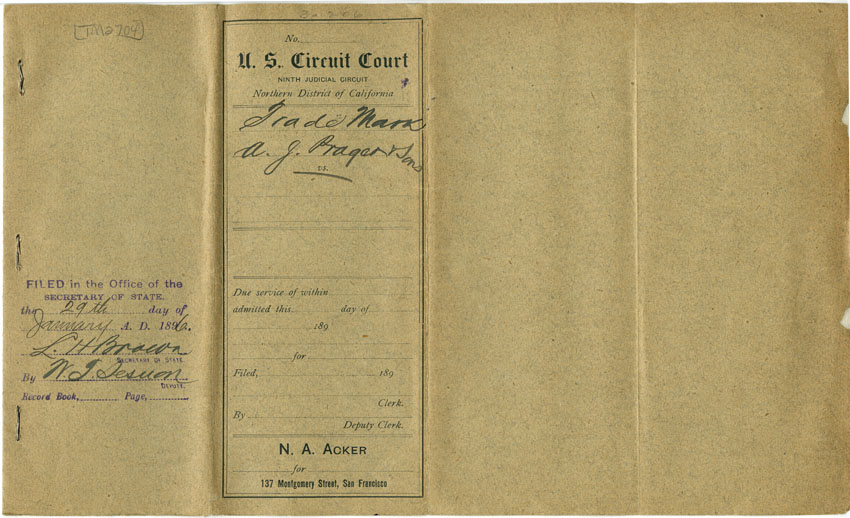 [TM2704]
FILED in the Office of the
SECRETARY OF STATE.
the 29th day of
January A. D. 1896.
L. H. Brown
SECRETARY OF STATE.
By W. T.
DEPUTY.
Record Book, Page,
No.
U. S. Circuit Court
NINTH JUDICIAL CIRCUIT
Northern District of California
Trade Mark
A. J. Prager & Sons
vs.
Due service of within
admitted this day of
189
for
Filed, 189
Clerk.
By
Deputy Clerk.
N. A. ACKER
for
137 Montgomery Street, San Francisco